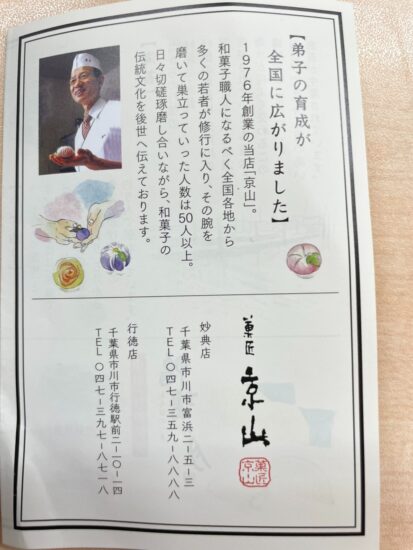 【弟子の育成が
全国に広がりました】
1976年創業の当店「京山」。
和菓子職人になるべく全国各地から
多くの若者が修行に入り、その腕を
磨いて巣立っていった人数は50人以上。
日々切磋琢磨し合いながら、和菓子の
伝統文化を後世へ伝えております。
菓匠 京山
菓匠
京山
妙典店
千葉県市川市富浜二-五-三
TEL 〇四七-三五九-八八八八
行徳店
千葉県市川市行徳駅前二-二〇-一四
TEL 〇四七-三九七-八七一八